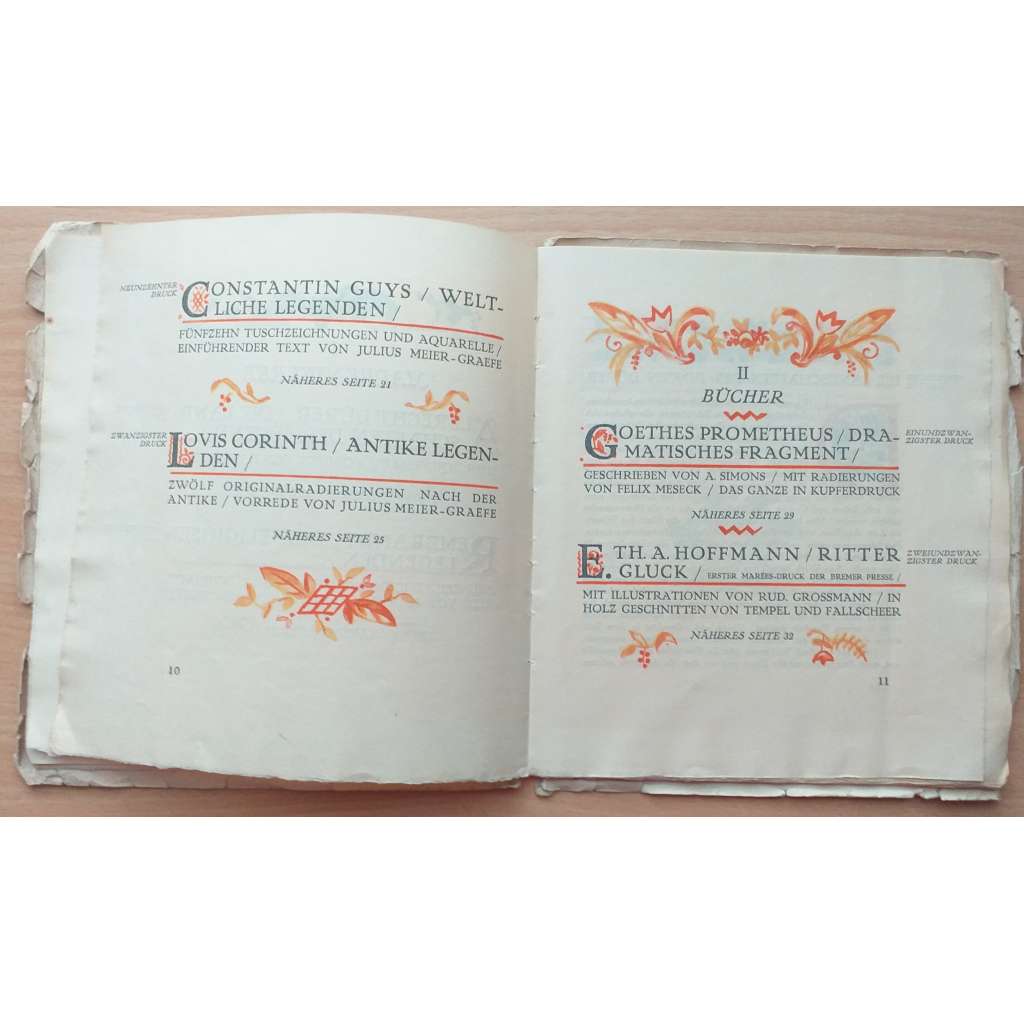 NEUNZEHNTER
DRUCK
CONSTANTIN GUYS / WELT-
LICHE LEGENDEN /
FÜNFZEHN TUSCHZEICHNUNGEN UND AQUARELLE /
EINFÜHRENDER TEXT VON JULIUS MEIER-GRAEFE
NÄHERES SEITE 21
ZWANZIGSTER
DRUCK
LOVIS CORINTH / ANTIKE LEGEN-
DEN /
ZWÖLF ORIGINALRADIERUNGEN NACH DER
ANTIKE / VORREDE VON JULIUS MEIER-GRAEFE
NÄHERES SEITE 25
10
II
BÜCHER
GOETHES PROMETHEUS / DRA-
MATISCHES FRAGMENT /
EINUNDZWAN-
ZIGSTER DRUCK
GESCHRIEBEN VON A. SIMONS / MIT RADIERUNGEN
VON FELIX MESECK / DAS GANZE IN KUPFERDRUCK
NÄHERES SEITE 29
E. TH. A. HOFFMANN / RITTER
GLUCK / ERSTER MARÉES-DRUCK DER BREMER PRESSE /
ZWEIUNDZWAN-
ZIGSTER DRUCK
MIT ILLUSTRATIONEN VON RUD. GROSSMANN / IN
HOLZ GESCHNITTEN VON TEMPEL UND FALLSCHEER
NÄHERES SEITE 32
11